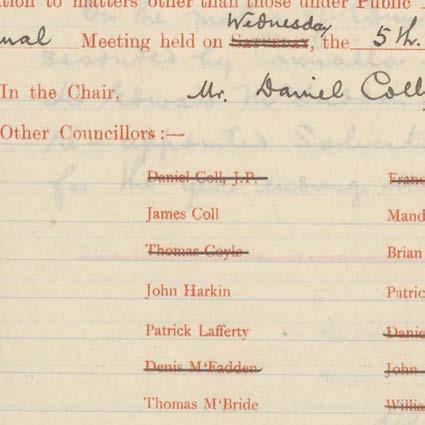 tion to matters other than those under Public
Wednesday
Meeting held on Saturday, the 5th.
In the Chair, Mr. Daniel Coll
Other Councillors :—
Daniel Coll, J.P.
James Coll Mand
Thomas Coyle Brian
John Harkin Patric
Patrick Lafferty Danie
Denis M'Fadden John
Thomas M'Bride Willia